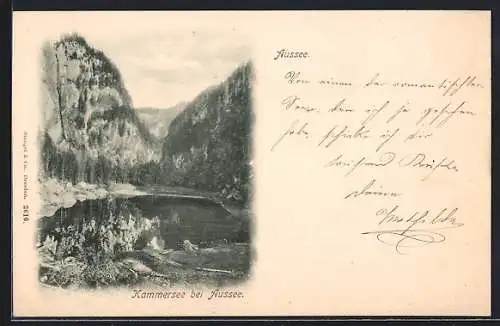 Aussee.
Von einem der romantischsten
Seen, den ich je gesehen
habe, schicke ich dir
tausend Küsse.
Deine
Mathilde
Kammersee bei Aussee.
Stengel & Co., Dresden. 2616.